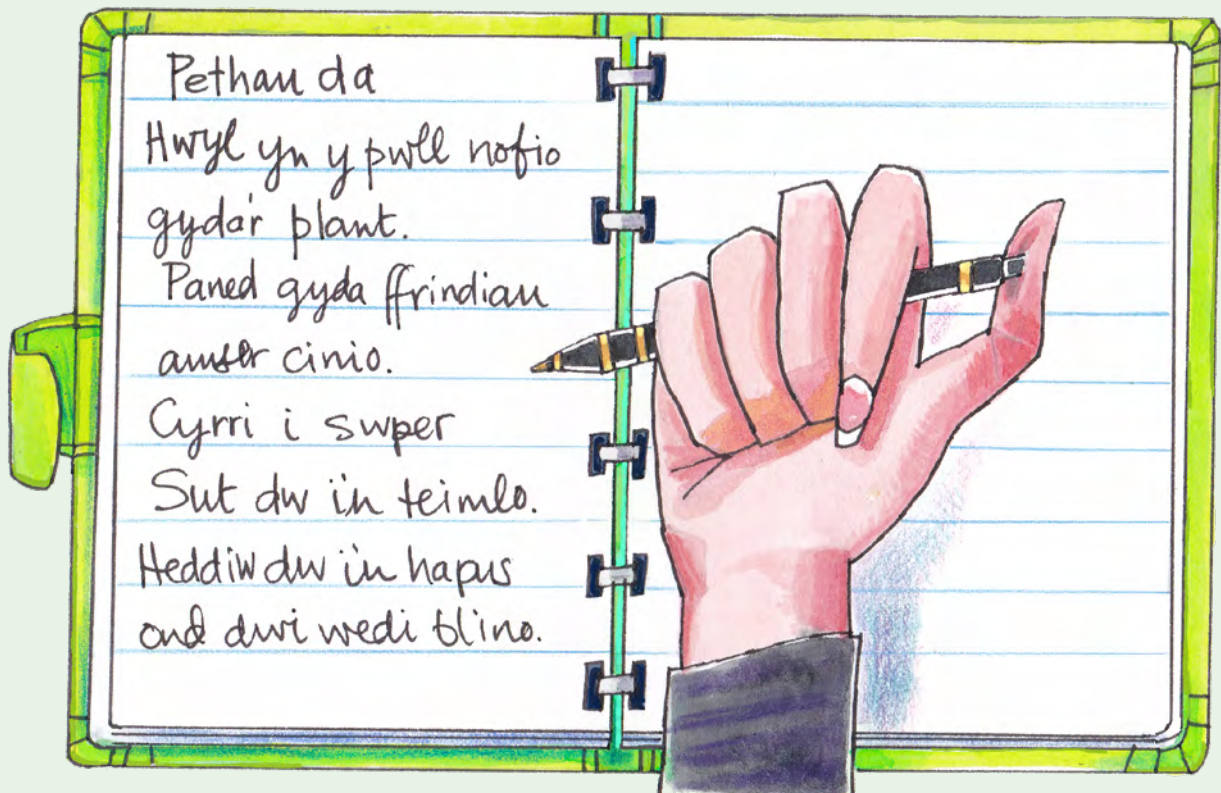 Pethau da
Hwyl yn y pwll nofio
gyda'r plant.
Paned gyda ffrindiau
amser cinio.
Cyrri i swper
Sut dw i'n teimlo.
Heddiw dw i'n hapus
ond dwi wedi blino.